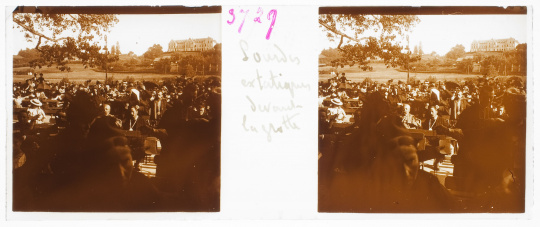 3729
Lourdes
extatiques
devant
la grotte